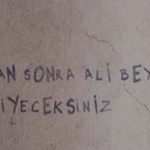 AN SONRA ALİ BEY
İYECEKSİNİZ